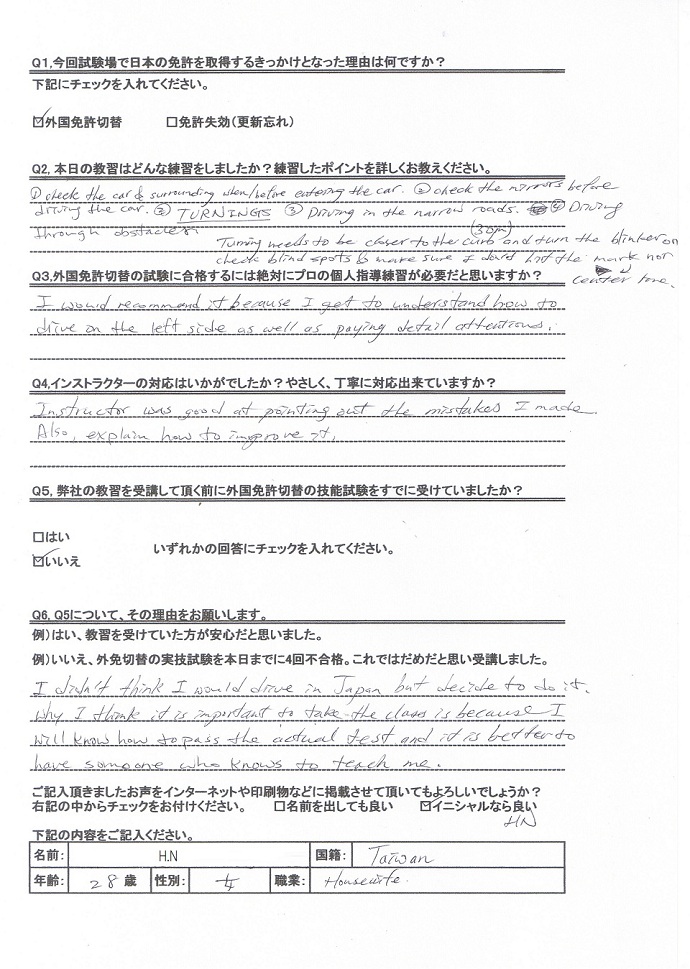 Q1,今回試験場で日本の免許を取得するきっかけとなった理由は何ですか?
下記にチェックを入れてください。
☑外国免許切替 □免許失効(更新忘れ)
Q2, 本日の教習はどんな練習をしましたか?練習したポイントを詳しくお教えください。
① check the car & surrounding when/before entering the car. ② check the mirrors before
driving the car. ② TURNINGS ③ Driving in the narrow roads. ④ Driving
through obstacles
(30cm)
Turning needs to be closer to the curb and turn the blinker on
check blind spots & make sure I don't hit the mark nor
center line.
Q3.外国免許切替の試験に合格するには絶対にプロの個人指導練習が必要だと思いますか?
I would recommand it because I get to understand how to
drive on the left side as well as paying detail attentions.
Q4,インストラクターの対応はいかがでしたか?やさしく、丁寧に対応出来ていますか?
Instructor was good at pointing out the mistakes I made.
Also, explain how to improve it.
Q5, 弊社の教習を受講して頂く前に外国免許切替の技能試験をすでに受けていましたか?
□はい
いずれかの回答にチェックを入れてください。
☑いいえ
Q6, Q5について、その理由をお願いします。
例)はい、教習を受けていた方が安心だと思いました。
例)いいえ、外免切替の実技試験を本日までに4回不合格。これではだめだと思い受講しました。
I didn't think I would drive in Japan but decide to do it.
Why I think it is important to take the class is because I
will know how to pass the actual test and it is better to
have someone who knows to teach me.
ご記入頂きましたお声をインターネットや印刷物などに掲載させて頂いてもよろしいでしょうか?
右記の中からチェックをお付けください。 □名前を出しても良い ☑イニシャルなら良い
HN
下記の内容をご記入ください。
名前: H.N 国籍: Taiwan
年齢: 28 歳 性別: 女 職業: Housewife.